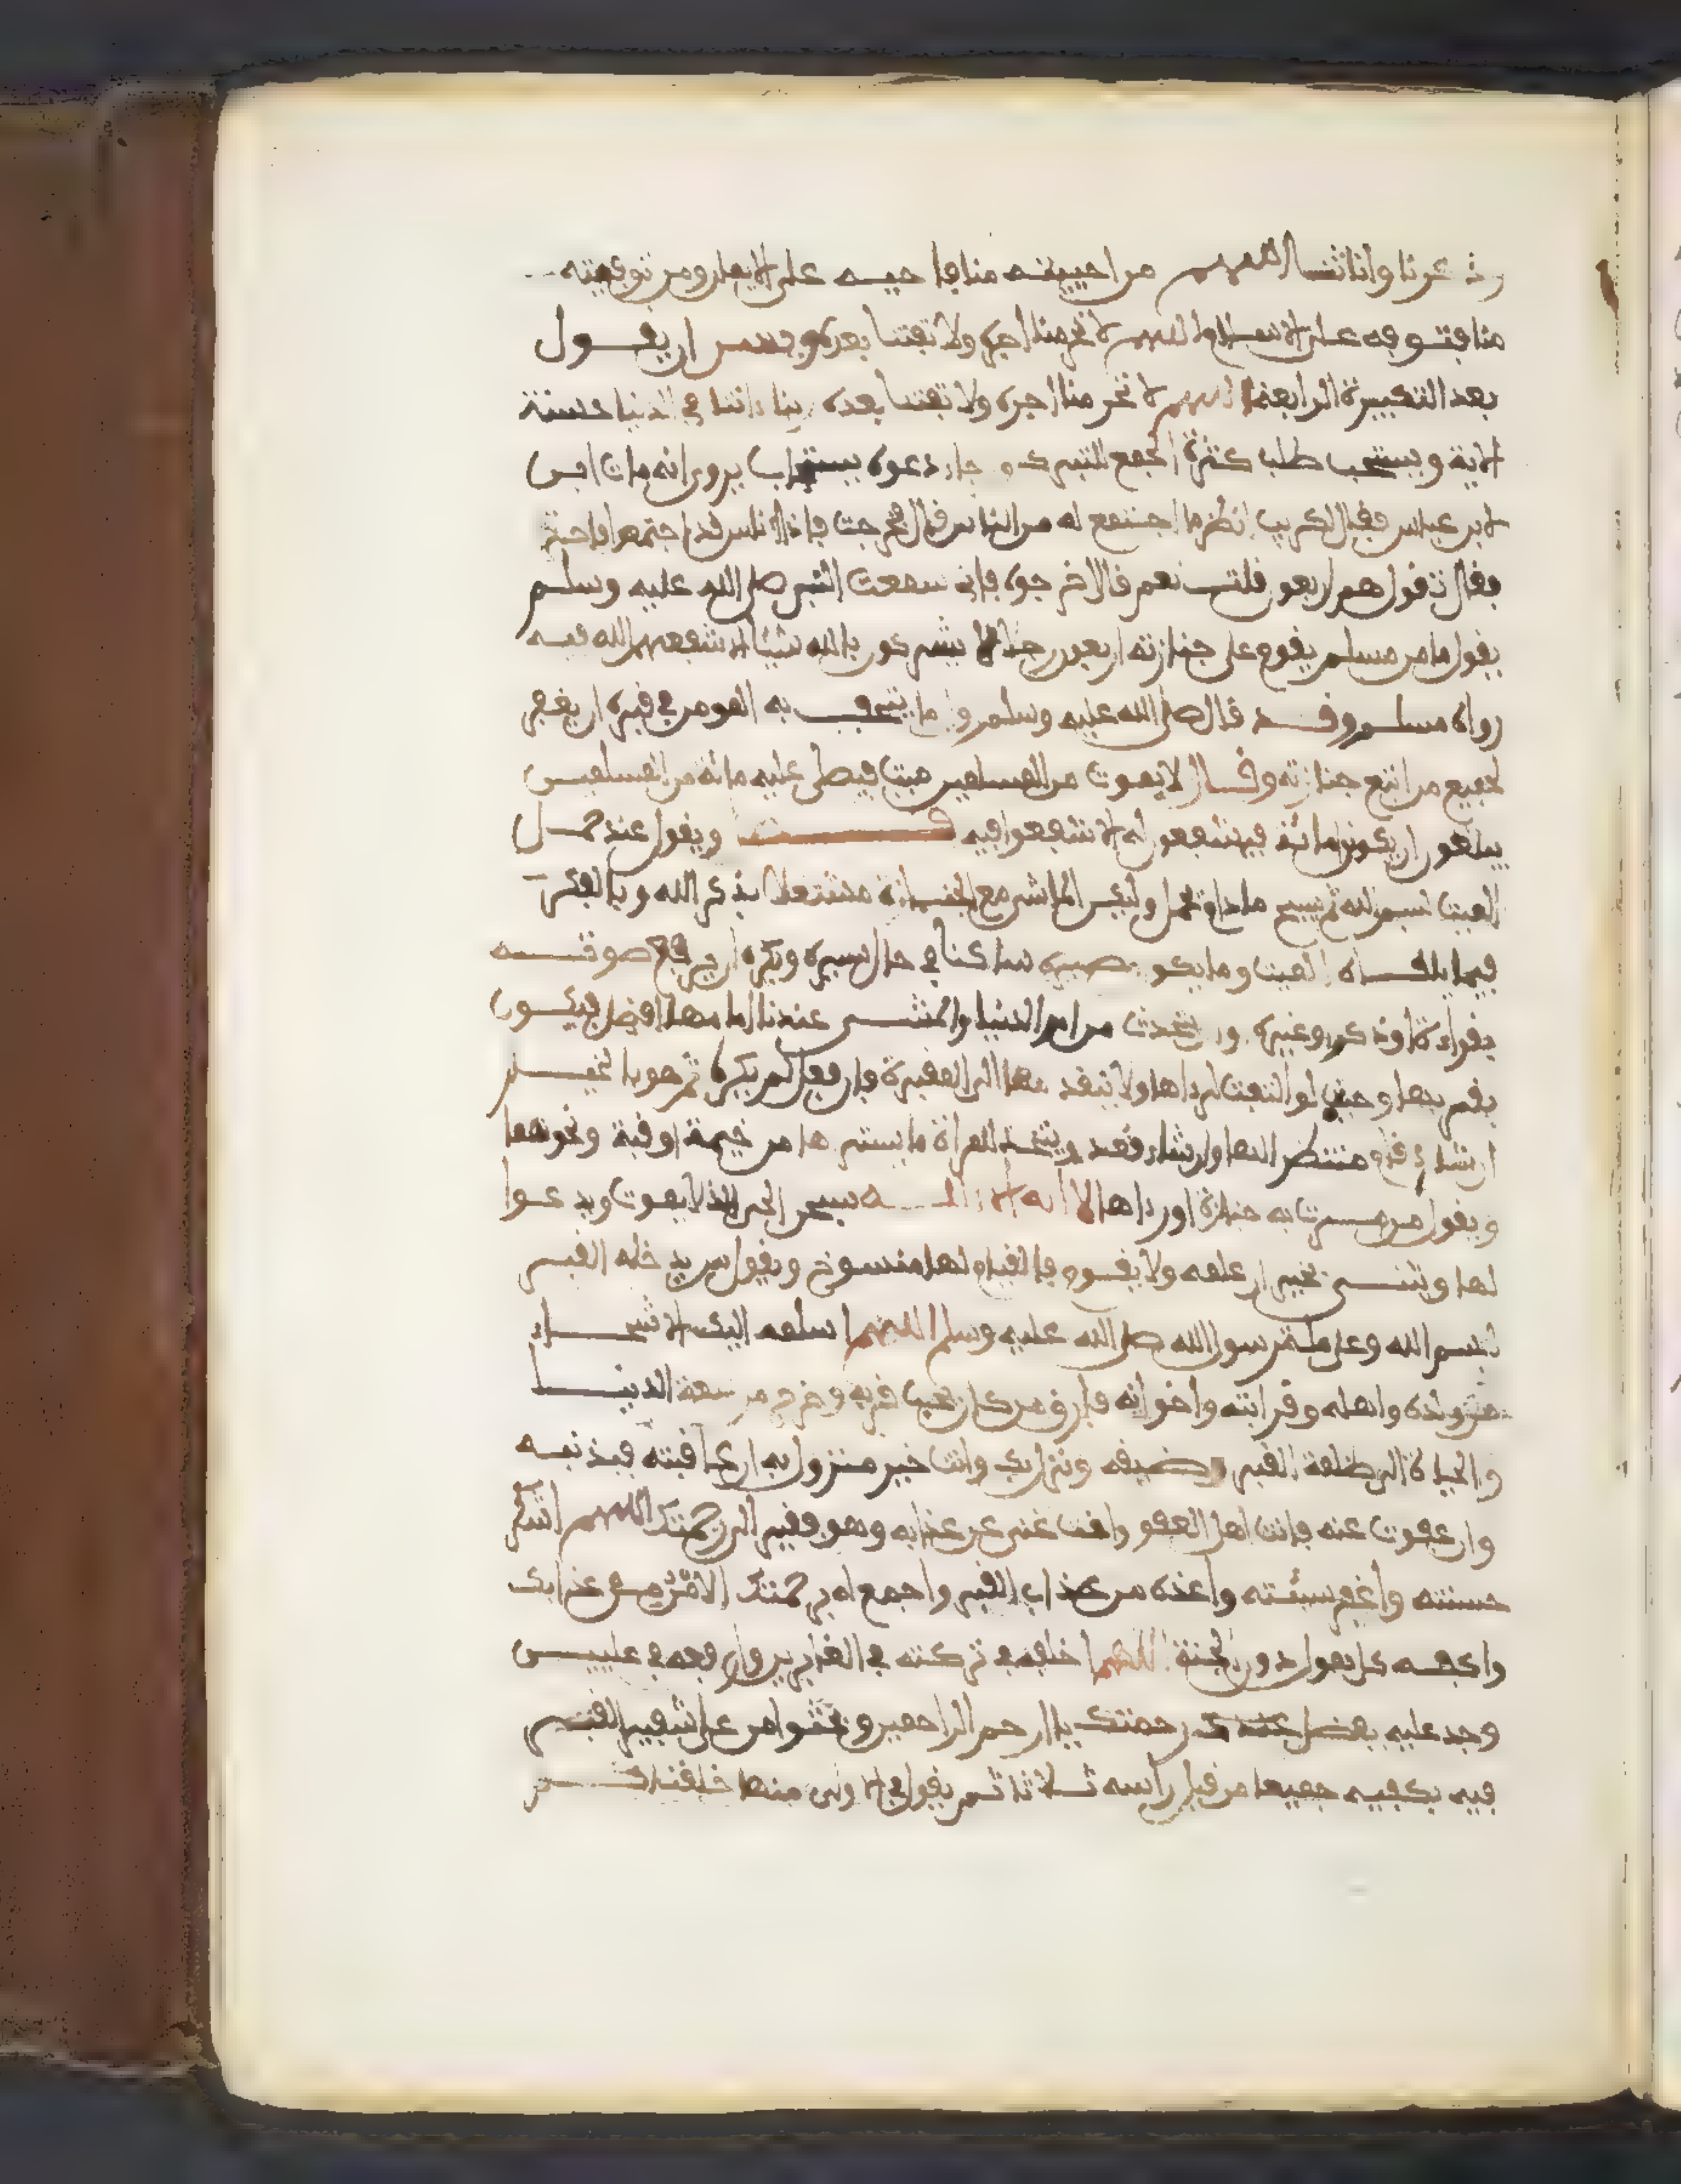 وذكرنا وأنثانا اللهم من احييته منا فاحيه على الايمان ومن توفيته
منا فتوفه على الاسلام اللهم لا تحرمنا اجره ولا تفتنا بعده وحسن ان يقول
بعد التكبيرة الرابعة اللهم لا تحرمنا اجره ولا تفتنا بعده ربنا ءاتنا في الدنيا حسنة
الاية ويستحب طلب كثرة الجمع للتبرك و دعوة يروى انه مات ابن
لابن عباس فقال لكريب انظر ما اجتمع له من الناس قال فخرجت فاذا الناس قد اجتمعوا
فقال تقول هم اربعون قلت نعم قال اخرجوه فإني سمعت النبي صلى الله عليه وسلم
يقول ما من مسلم يقوم على جنازته اربعون رجلا لا يشركون بالله شيئا الا شفعهم الله فيه
رواه مسلم وقد قال صلى الله عليه وسلم ما يتحف به المومن في قبره ان يغفر
لجميع من اتبع جنازته وقال لا يموت من المسلمين ميت فيصلي عليه مائة من المسلمين
يبلغون ان يكونوا مائة فيشفعون له الا شفعوا فيه ويقول عند حمل
الميت بسم الله ثم يسبح ما دام يحمل وليكن الماشي مع الجنازة مشتغلا بذكر الله وبالفكر
فيما يلقاه الميت وما يكون مصيره ساكتا في حال سيره ويكره ان يرفع صوته
بقراءة او ذكر وغيره يتحدث من امر الدنيا والمشي عندنا امامها افضل فيكون
بقربها وحيث لو التفت لرءاها ولا يتقدمها الى المقبرة فإن فعل لم يكره ثم هو بالخيار
ان شاء قام منتظرا لها وان شاء قعد ويتخذ للمرأة ما يسترها من خيمة او قبة ونحوهما
ويقول من مرت به جنازة او رءاها لا اله الا الله سبحن الحي الذي لا يموت ويدعوا
لها ويثني بخير ان علمه ولا يقوم فالقيام لها منسوخ ويقول من يدخله القبر
بسم الله وعلى ملة رسول الله صلى الله عليه وسلم اللهم اسلمه اليك الاشحاء
من ولده واهله وقرابته واخوانه وفارق من كان يحب قربه وخرج من سعة الدنيا
والحياة الى ظلمة القبر وضيقه ونزل بك وانت خير منزول به ان عاقبته فبذنبه
وان عفوت عنه فانت اهل العفو وانت غني عن عذابه وهو فقير الى رحمتك اللهم اشكر
حسنته واغفر سيئته واعذه من عذاب القبر واجمع له برحمتك الامن من عذابك
واكفه كل هول دون الجنة اللهم اخلفه في تركته في الغابرين وارفعه في عليين
وجد عليه بفضل رحمتك يا ارحم الراحمين ويحثوا من على شفير القبر
فيه بكفيه جميعا من قبل رأسه ثلاثا ثم يقول في الاولى منها خلقناكم